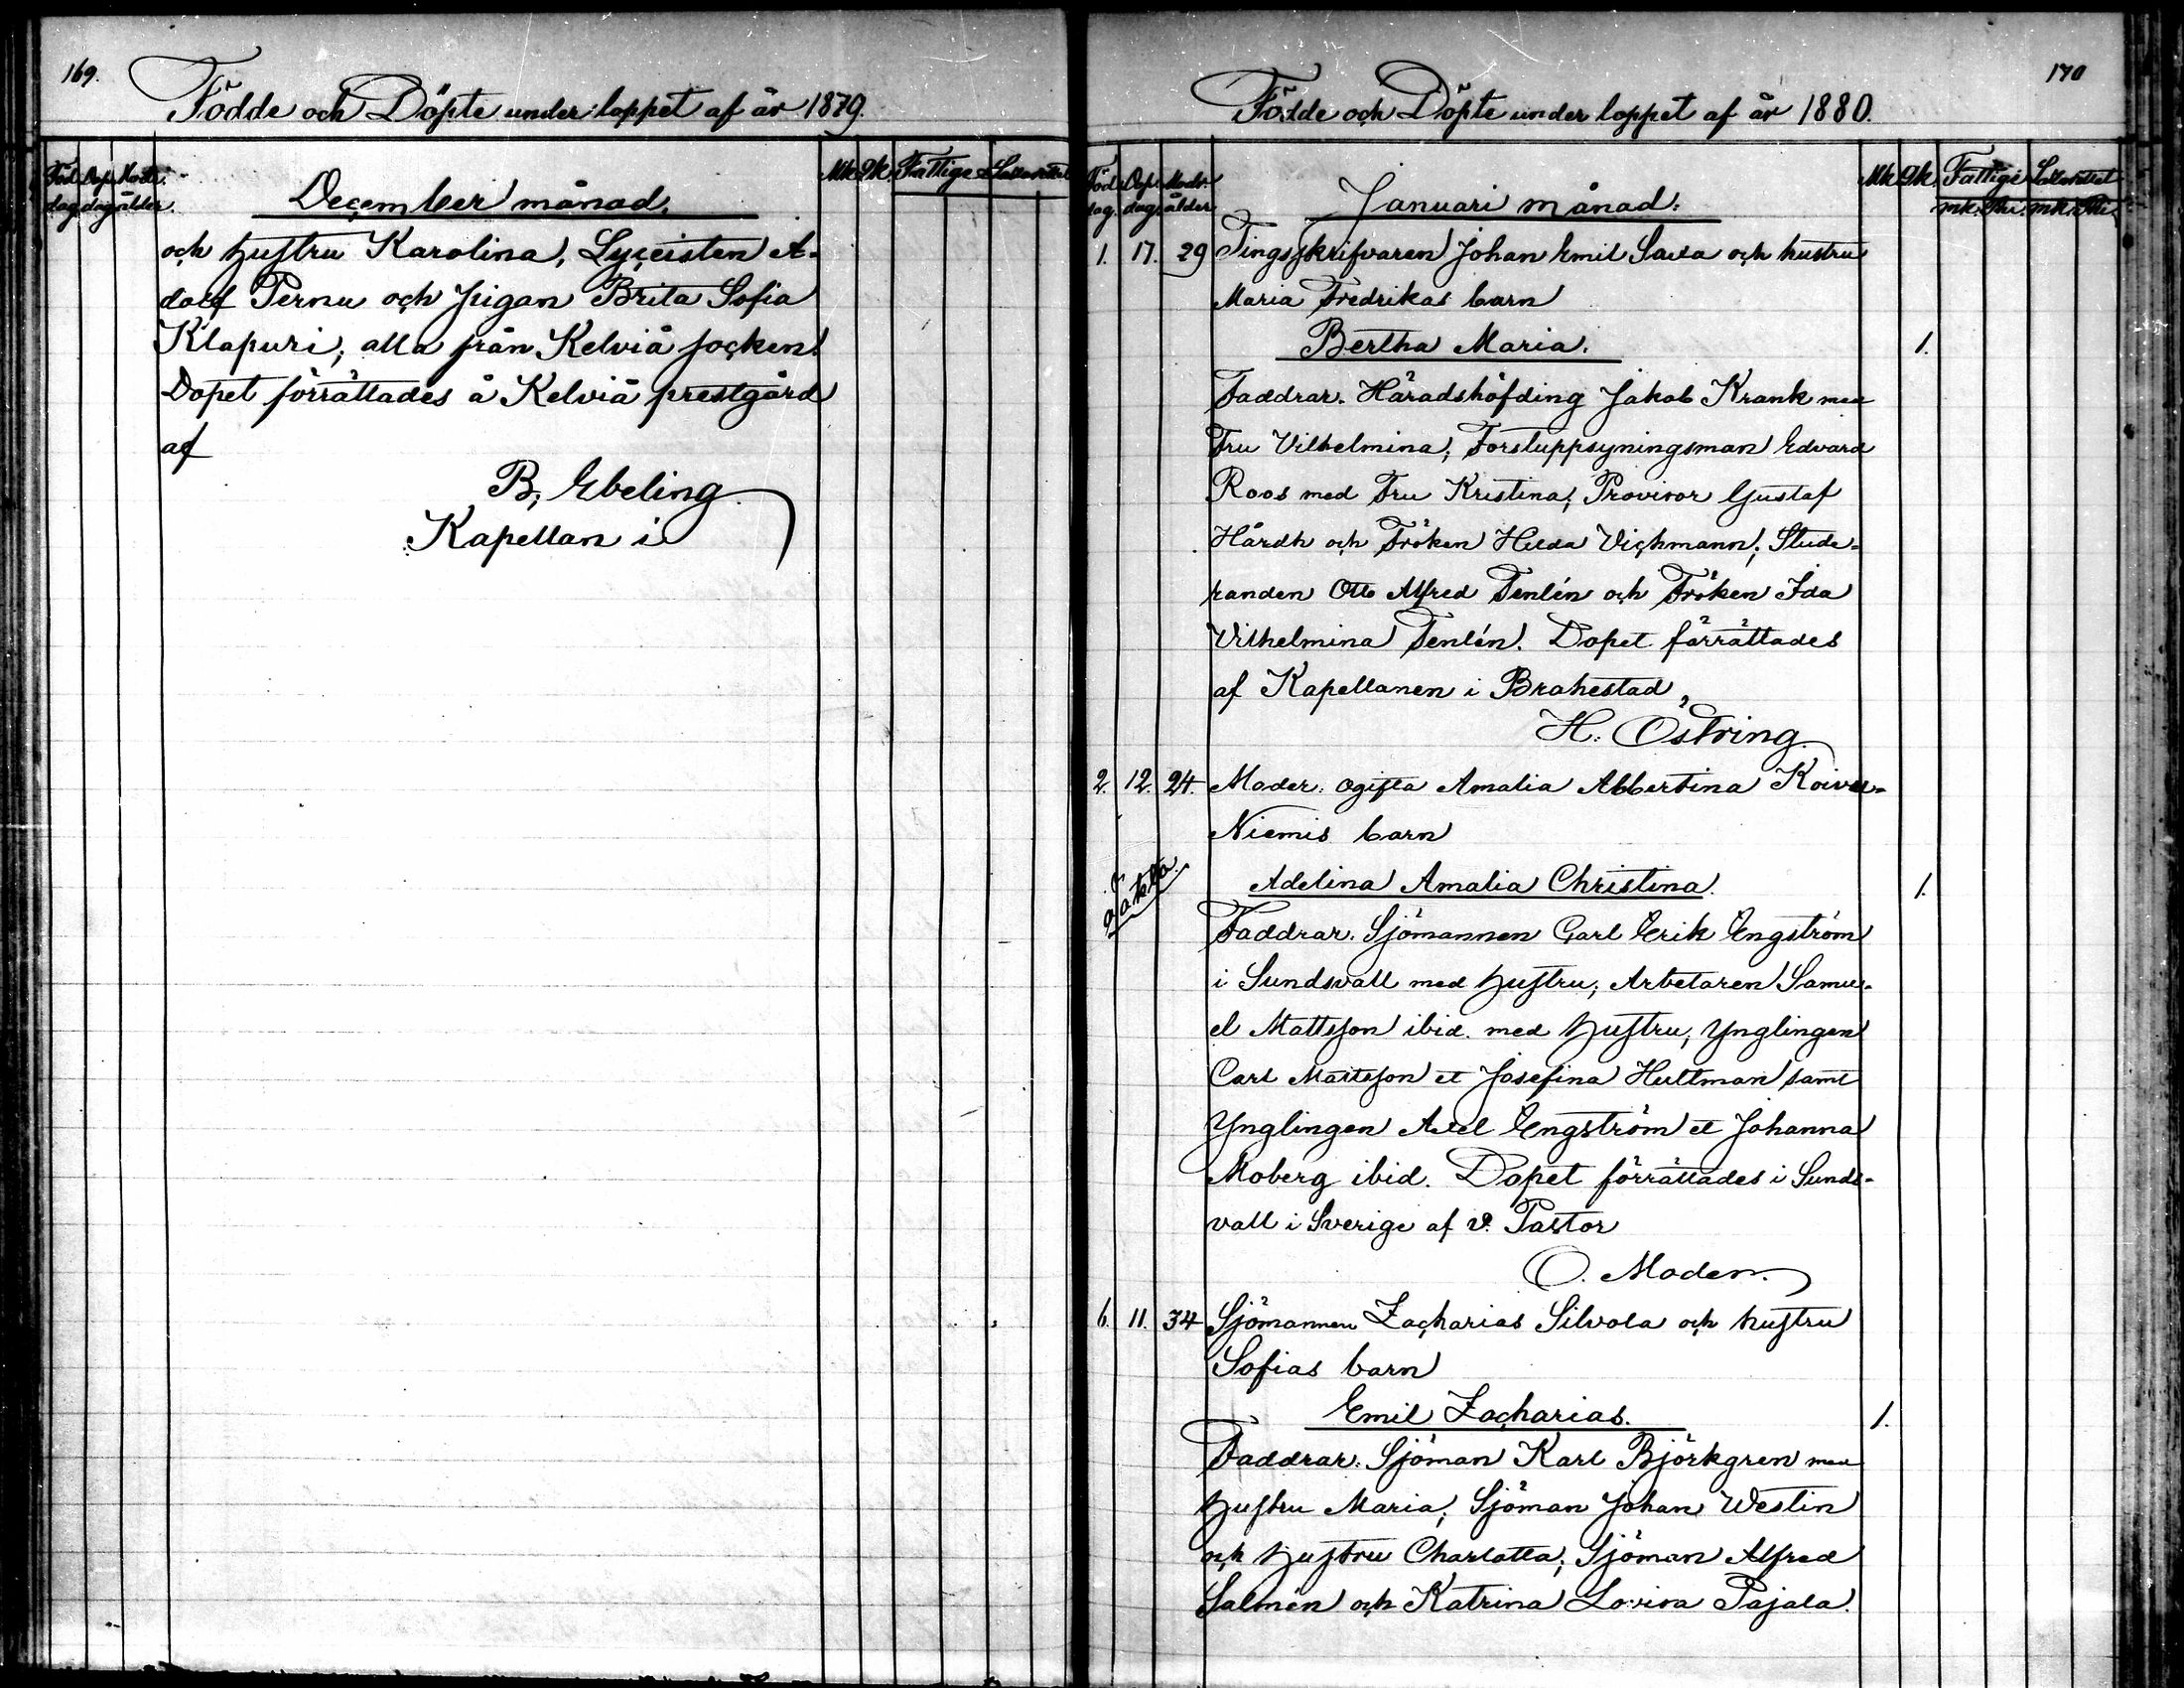 169.
Födde och Döpte under loppet af år 1879.
Föd. Dop. Modr. Mk. Qk. Fattige
dag. dag. ålder.
December månad.
och hustru Karolina, Lyceisten A-
dolf Pernu och pigan Brita Sofia
Klapuri; alla från Kelviå socken.
Dopet förrättades å Kelviå prestgård
af
B. Ebeling
Kapellan i
170
Födde och Döpte under loppet af år 1880.
Föd. Dop. Modr. Mk. Qk. Fattige Lasarettet
dag. dag. ålder mk. pi. mk. pi.
Januari månad.
1. 17. 29 Tingsskrifvaren Johan Emil Sava och hustru
Maria Fredrikas barn
Bertha Maria. 1.
Faddrar. Häradshöfding Jakob Krank med
Fru Vilhelmina; Forstuppsyningsman Edvard
Roos med Fru Kristina; Provisor Gustaf
Hårdh och Fröken Hilda Vichmann; Stude-
randen Otto Alfred Tenlén och Fröken Ida
Vilhelmina Tenlén. Dopet förrättades
af Kapellanen i Brahestad,
H. Östring.
2. 12. 24. Moder: ogifta Amalia Albertina Koivu-
Niemis barn
oäkta.
Adelina Amalia Christina. 1.
Faddrar. Sjömannen Carl Erik Engström
i Sundsvall med hustru; Arbetaren Samu-
el Mattsson ibid. med hustru; Ynglingen
Carl Mattsson et Josefina Hultman samt
Ynglingen Axel Engström et Johanna
Moberg ibid. Dopet förrättades i Sunds-
vall i Sverige af v. Pastor
O. Moden.
6. 11. 34 Sjömannen Zacharias Silvola och hustru
Sofias barn
Emil Zacharias. 1.
Faddrar: Sjöman Karl Björkgren med
hustru Maria; Sjöman Johan Westin
och hustru Charlotta; Sjöman Alfred
Salmén och Katrina Lovisa Pajala.